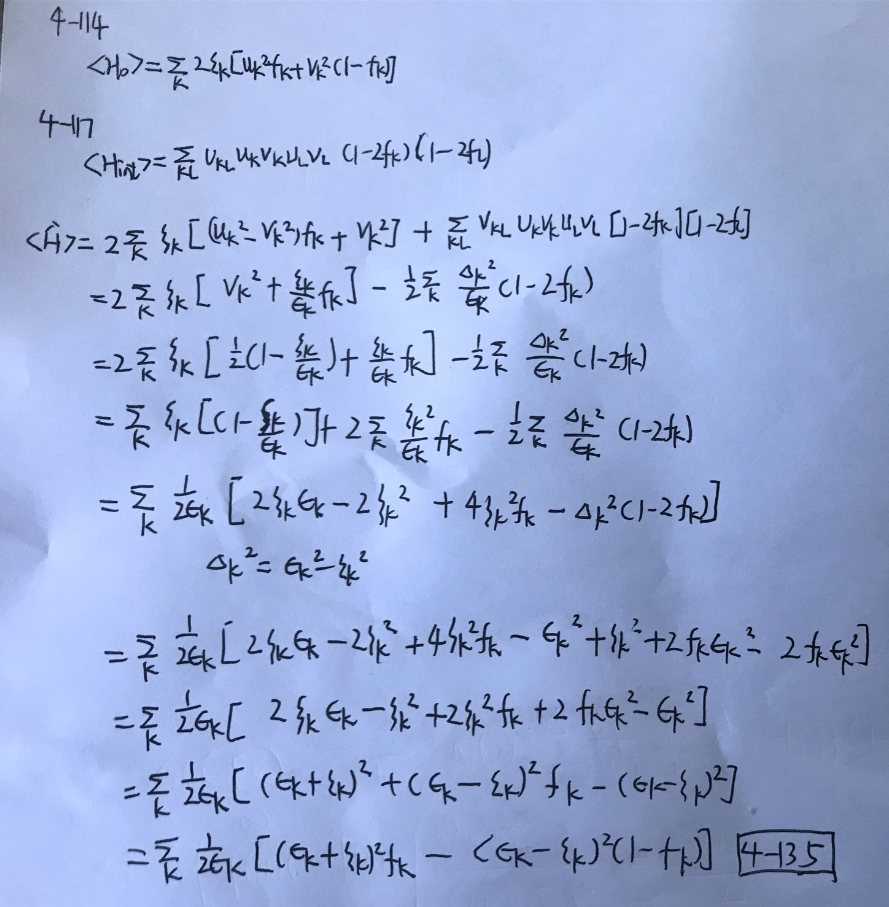 4-114
<H₀>=Σ_K 2ξ_K[u_K²f_K+V_K²(1-f_K)]
4-117
<H_int>=Σ_KL U_KL U_K V_K U_L V_L (1-2f_K)(1-2f_L)
<Ĥ>=2Σ_K ξ_K[(u_K²-V_K²)f_K+V_K²]+Σ_KL V_KL U_K V_K U_L V_L [1-2f_K][1-2f_L]
=2Σ_K ξ_K[V_K²+ξ_K/ϵ_K f_K]-1/2 Σ_K Δ_K²/ϵ_K (1-2f_K)
=2Σ_K ξ_K[1/2(1-ξ_K/ϵ_K)+ξ_K/ϵ_K f_K]-1/2 Σ_K Δ_K²/ϵ_K (1-2f_K)
=Σ_K ξ_K[(1-ξ_K/ϵ_K)]+2Σ_K ξ_K²/ϵ_K f_K-1/2 Σ_K Δ_K²/ϵ_K (1-2f_K)
=Σ_K 1/2ϵ_K [2ξ_Kϵ_K-2ξ_K²+4ξ_K²f_K-Δ_K²(1-2f_K)]
Δ_K²=ϵ_K²-ξ_K²
=Σ_K 1/2ϵ_K [2ξ_Kϵ_K-2ξ_K²+4ξ_K²f_K-ϵ_K²+ξ_K²+2f_Kϵ_K²-2f_Kξ_K²]
=Σ_K 1/2ϵ_K [2ξ_Kϵ_K-ξ_K²+2ξ_K²f_K+2f_Kϵ_K²-ϵ_K²]
=Σ_K 1/2ϵ_K [(ϵ_K+ξ_K)²+(ϵ_K-ξ_K)²f_K-(ϵ_K-ξ_K)²]
=Σ_K 1/2ϵ_K [(ϵ_K+ξ_K)²f_K-(ϵ_K-ξ_K)²(1-f_K)] 4-135